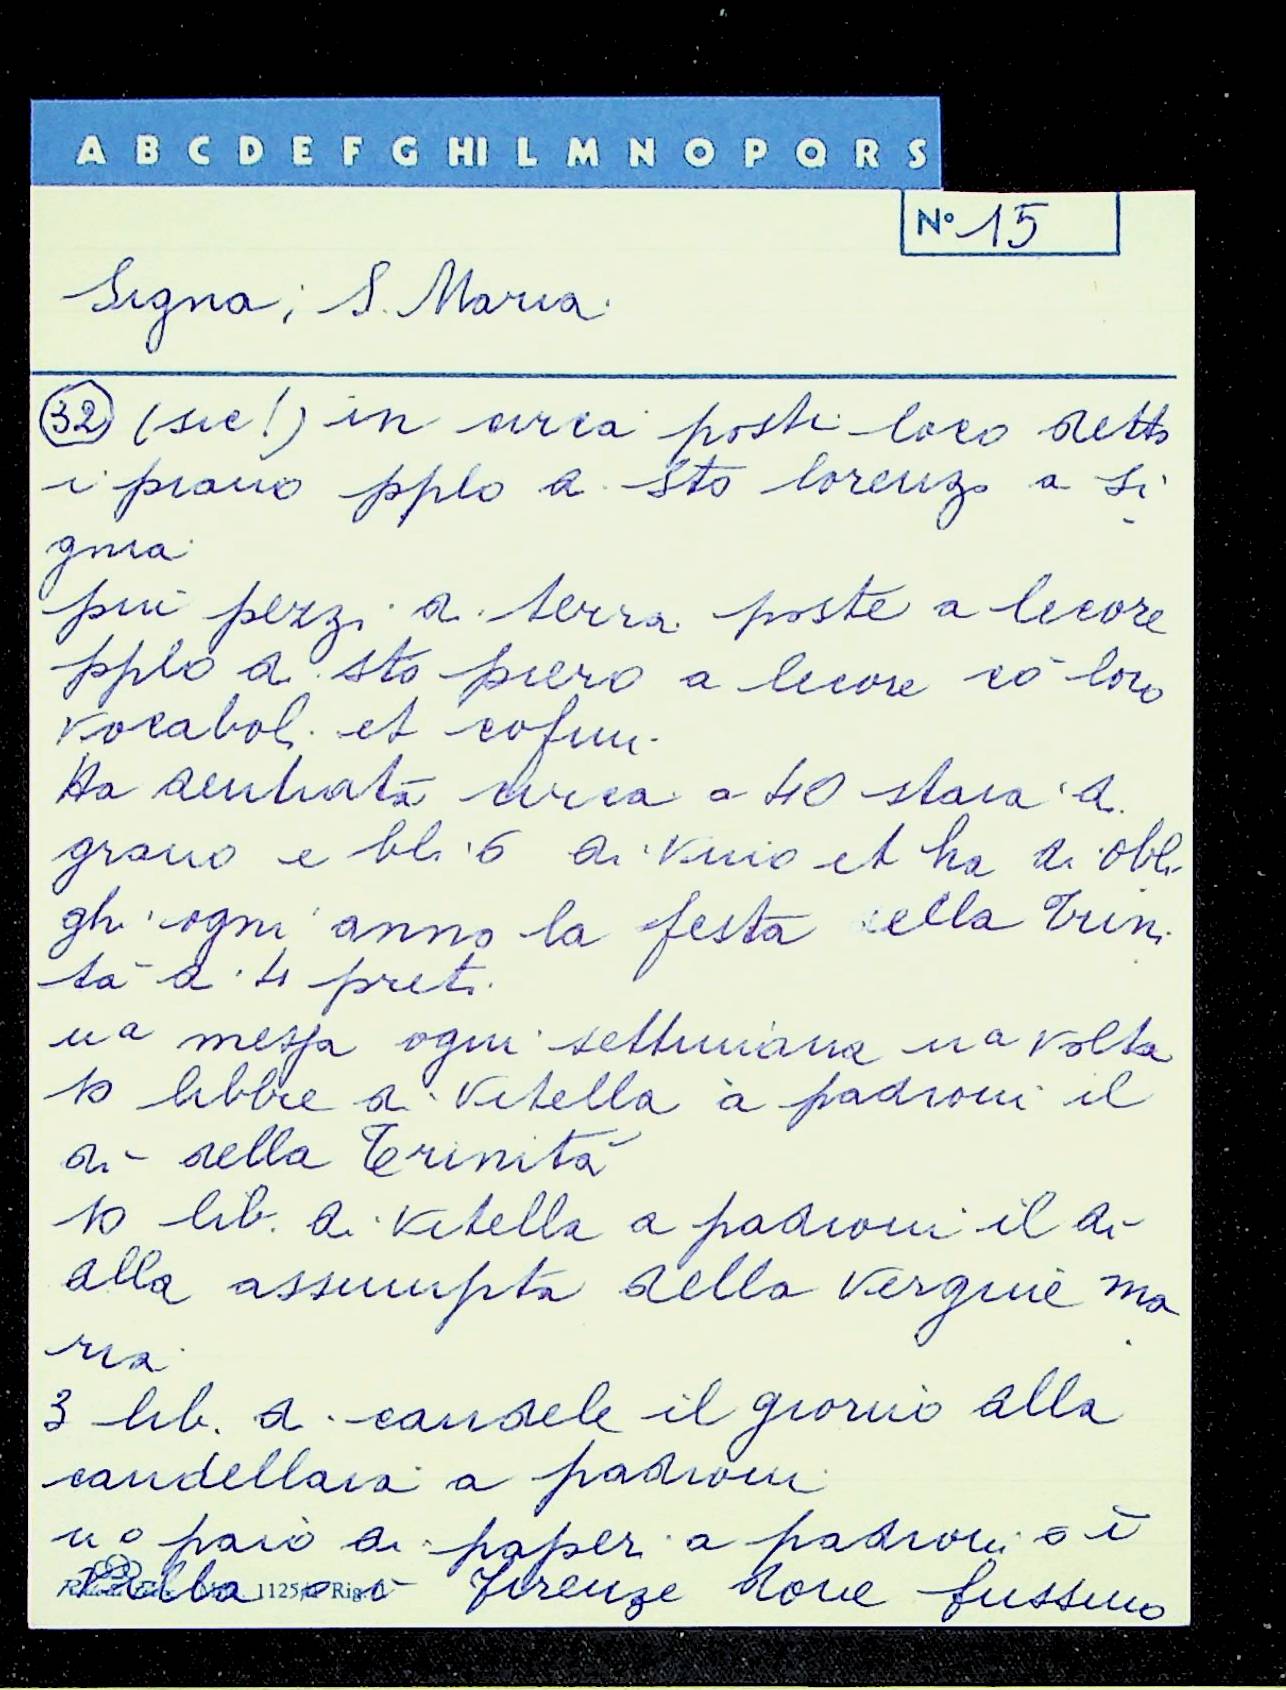 A B C D E F G HI L M N O P Q R S
N° 15
Signa; S. Maria
32 (sic!) in circa posti loco detto
i piano pplo di sto lorenzo a si
gnia
più pezzi di terra poste a lecore
pplo di sto piero a lecore cō loro
vocaboli et cofini
Ha dentrata circa a 40 staia di
grano e bli 6 di vino et ha di obli
ghi ogni anno la festa della Trini
tà di 4 preti
una messa ogni settimana una volta
10 libbre di vitella a padroni il
di della Trinità
10 lib. di vitella a padroni il di
alla assumpta della vergine ma
ria
3 lib. di candele il giorno alla
candellaia a padroni
uno paio di paperi a padroni o ī
villa o ī Firenze dove fussino
1125 Rig.